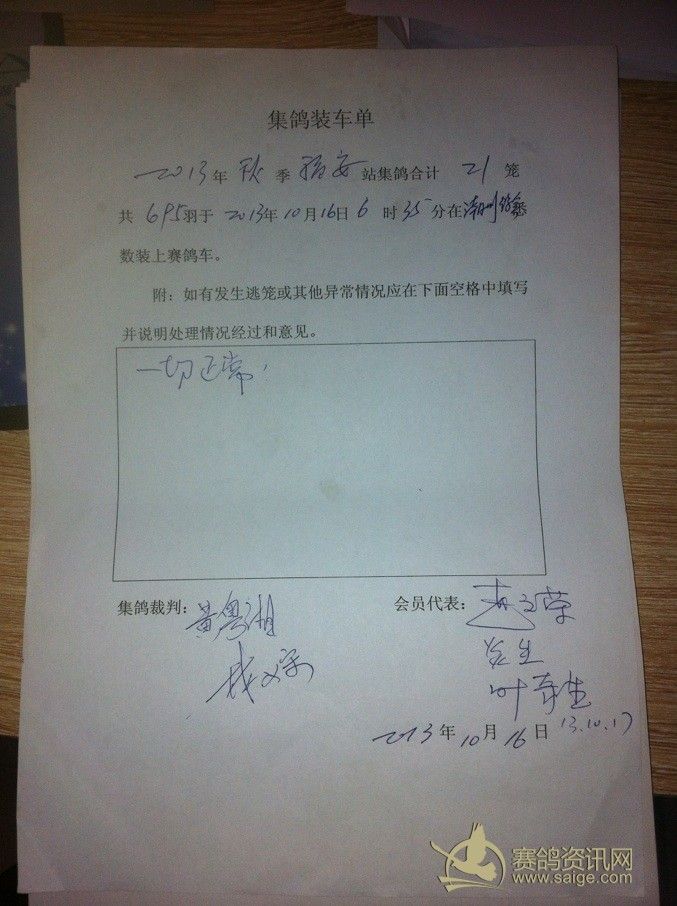 集鸽装车单
2013年 秋 季 雅安 站集鸽合计 21 笼
共 695羽于 2013年10月16日6 时35分在潮州 悉
数装上赛鸽车。
附：如有发生逃笼或其他异常情况应在下面空格中填写
并说明处理情况经过和意见。
一切正常！
集鸽裁判：黄粤湘 会员代表：
叶奇生
2013年10月16日 13.10.17
赛鸽资讯网
www.saige.com